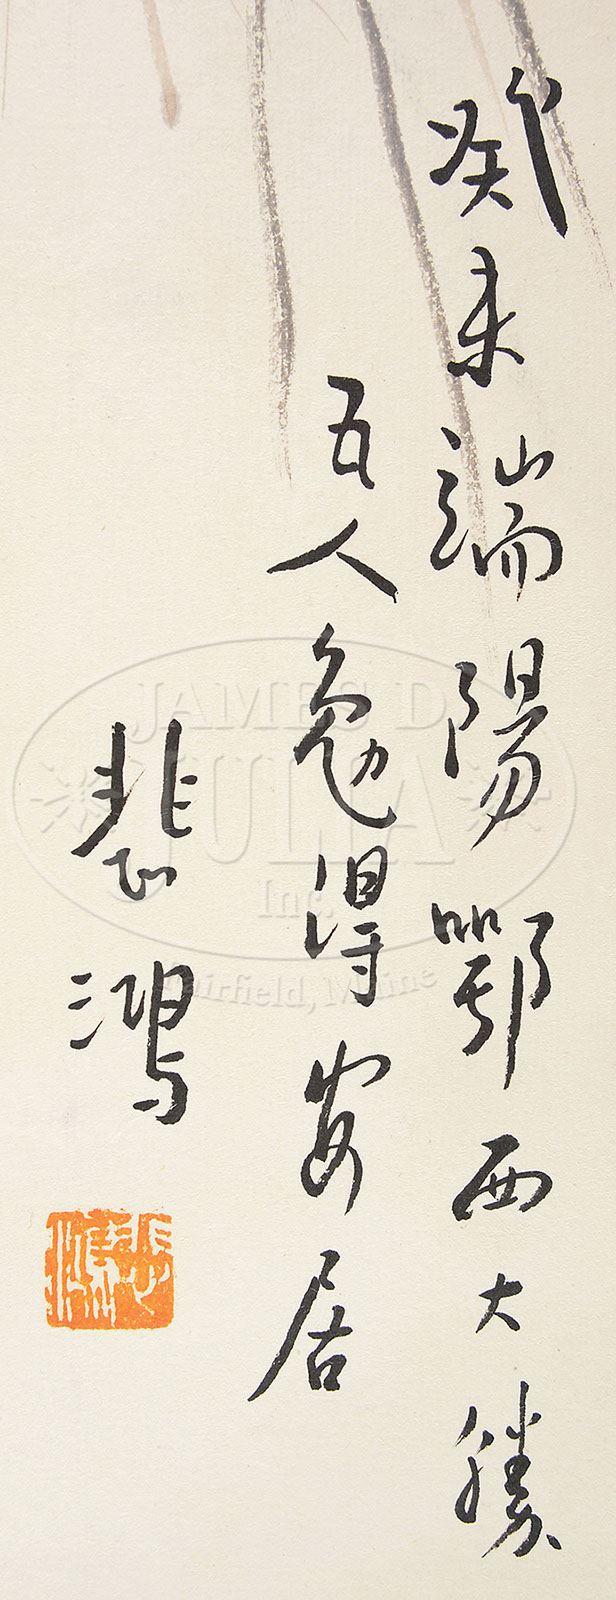 癸未端陽鄂西大勝
五人勉得安居
悲鴻
JAMES D.
JULIA
Inc.
Fairfield, Maine